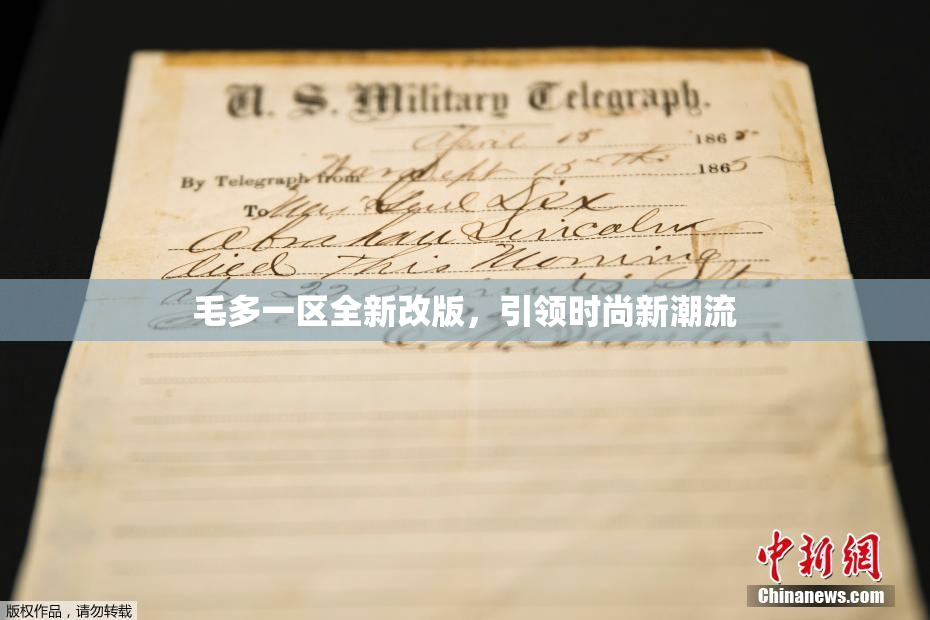 U. S. Military Telegraph.
April 15 1865
By Telegraph from War Dept 15th 1865
To Maj Genl Dix
Abraham Lincoln
died This Morning
at 22 minutes after
毛多一区全新改版，引领时尚新潮流
E. M. Stanton
中新网
Chinanews.com
版权作品，请勿转载